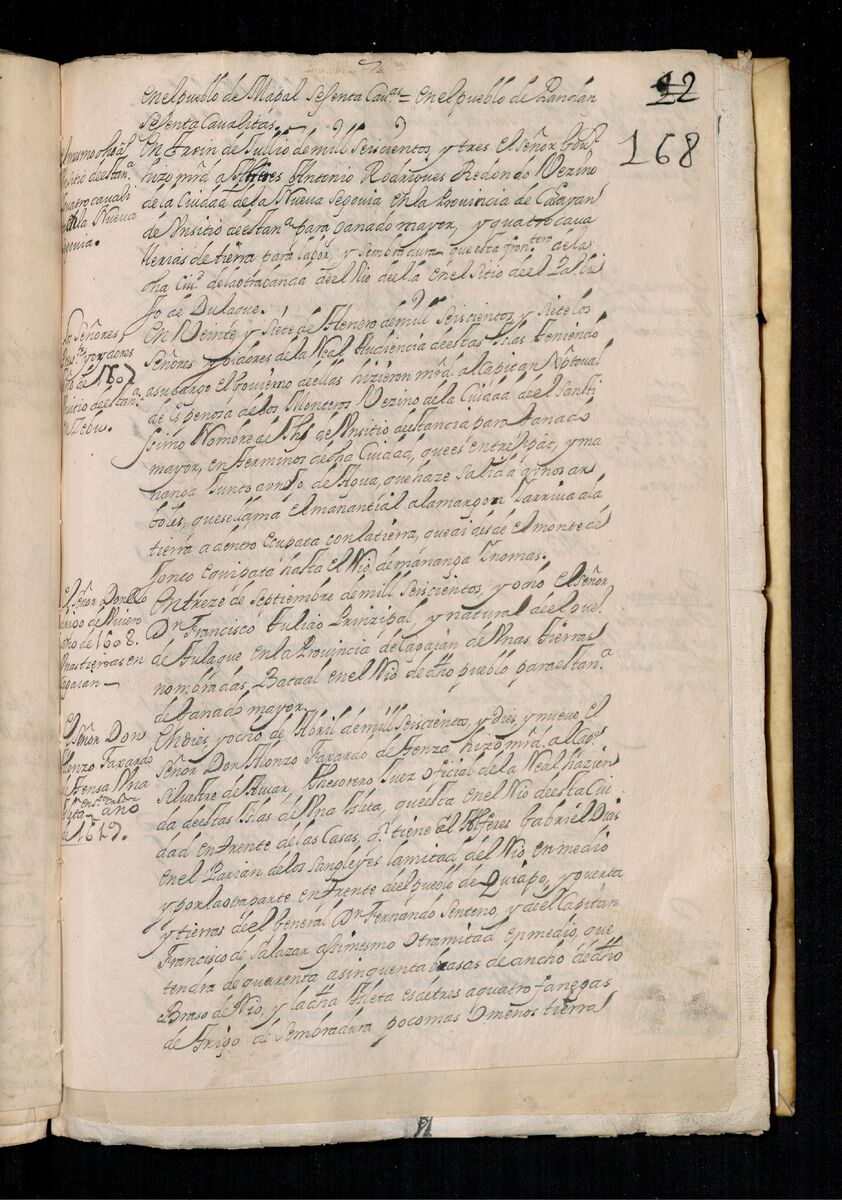 22
168
en el pueblo de Mapal sesenta Cav.as = en el pueblo de Pandan
sesenta Cavalitas.
El mismo año al
sitio de estan.a
quatro cavali
en la Nueva
Segovia.
En de Jullio de mill seiscientos, y tres el Señor Gov.or
hizo mrd a Alferes Antonio Rodrigues Redondo Vezino
de la Ciudad de la Nueva Segovia en la Provincia de Cagayan
de Un sitio de estan.a para ganado mayor, y quatro cava
llerias de tierra para labor, y sembradura que esta frontero de la
dha Ciu.d de la otra banda del Rio de ella en el sitio de el
jo de Dulaque.
Señores
oydores
año de 1607
Un sitio de estan.a
en Zebu.
En Veinte, y siete de Henero de mill seiscientos, y siete los
Señores oydores de la Real Audiencia de estas Islas teniendo
a su cargo el Govierno de ellas hizieron mrd. al Capitan
de Espinosa de los Monteros Vezino de la Ciudad de el Santi
simo Nombre de Jhs de Un sitio de estancia para Ganado
mayor, en terminos de dha Ciudad, que es entre Ypat, y ma
nanga Junto a un ojo de Agua, que haze salida a unos ar
boles, que se llama el mañantial a la margen arriva a la
tierra a dentro con la tierra, que ai desde el monte de
Junto hasta el Rio de mananga Thomas.
El Señor Don Ro
drigo de Rivero
año de 1608.
Unas tierras en
Cagaian
En treze de Septiembre de mill seiscientos, y ocho el Señor
Dn Francisco Tuliao Prinzipal, y natural de el pue.o
de Tulaque en la Provincia de Cagaian de Unas tierras
nombradas, Bataal en el Rio de dho pueblo para estan.a
de ganado mayor.
El Señor Don
Alonzo Faxardo
de Atensa Una
Isleta año
de 1619.
En dies, y ocho de Abril de mill seiscientos, y dies, y nueve el
Señor Don Alonzo Faxardo de Tenza hizo mrd. al Cap.n
Saluestre de Aivar, Thesorero Juez oficial de la Real hazien
da de estas Islas de Una Isleta, que esta en el Rio de esta Ciu
dad en frente de las Casas, q.e tiene el Alferes Gabriel Dias
en el Parian de los Sangleyes la mitad del Rio en medio
y por la otra parte en frente de el pueblo de Quiapo, y guerta
y tierras de el General Dn Fernando Senteno, y de el Capitan
Francisco de Salazar assimesmo otra mitad en medio, que
tendra de quarenta a sinquenta brasas de ancho de dho
Braso de Rio, y la dha Isleta es de tres a quatro fanegas
de trigo de sembradura poco mas o menos tierra